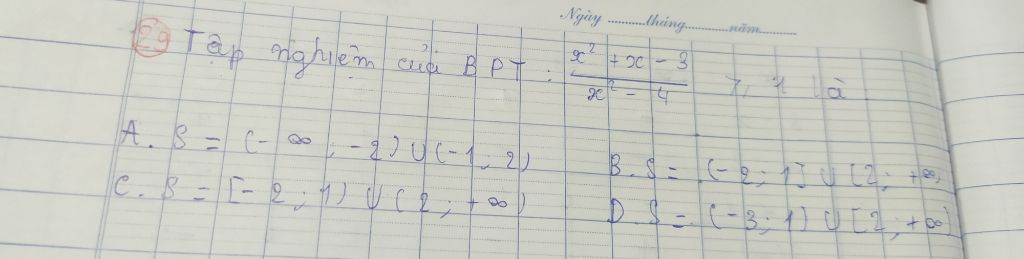 Ngày ..........tháng..........năm..........
29 Tập nghiệm của BPT : (x² + x - 3)/(x² - 4) ≥ 1 là
A. S = (- ∞ ; -2) ∪ (-1, 2) B. S = (-2 ; 1] ∪ (2 ; +∞)
C. S = [-2 ; 1) ∪ (2 ; +∞) D. S = (-3 ; 1] ∪ [2 ; +∞)